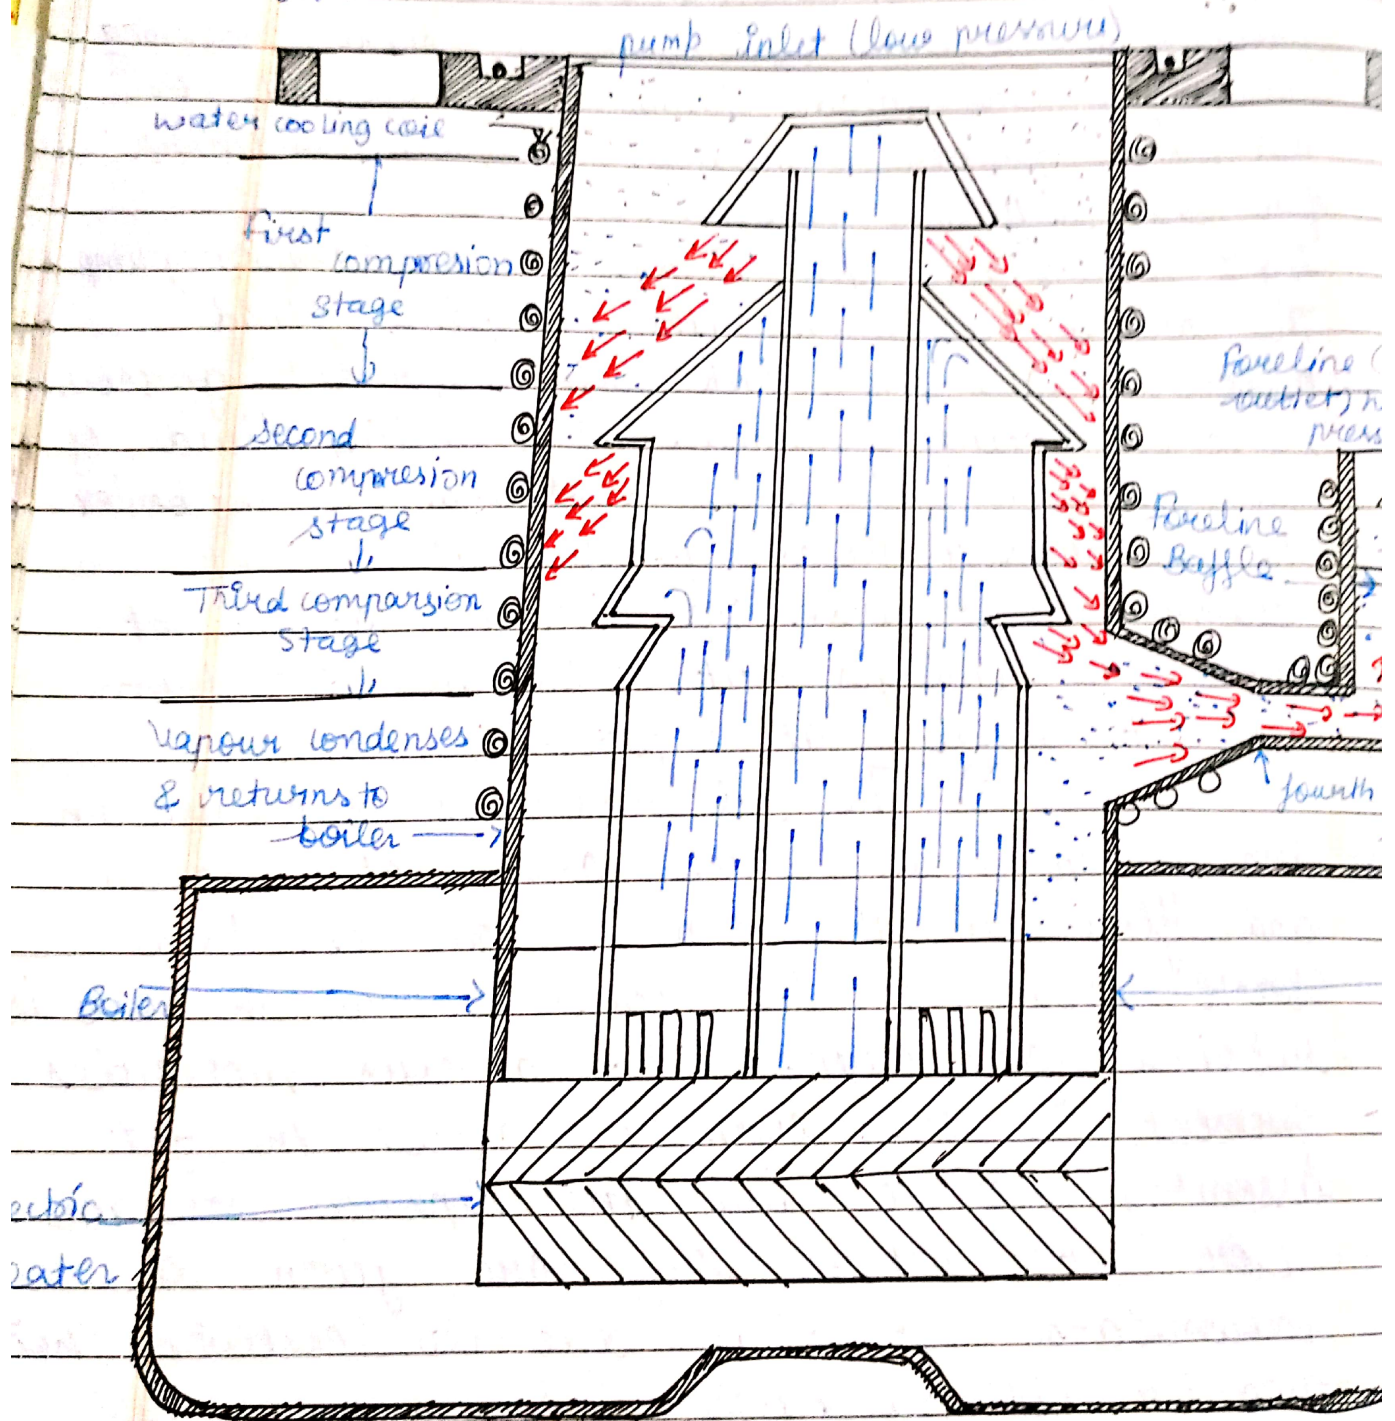 pump inlet (low pressure)
water cooling coil
first
compresion
stage
second
compresion
stage
Third comparsion
stage
Vapour condenses
& returns to
boiler
Boiler
ectric
eater
Foreline (
outlet) h
press
Foreline
Baffle
fourth